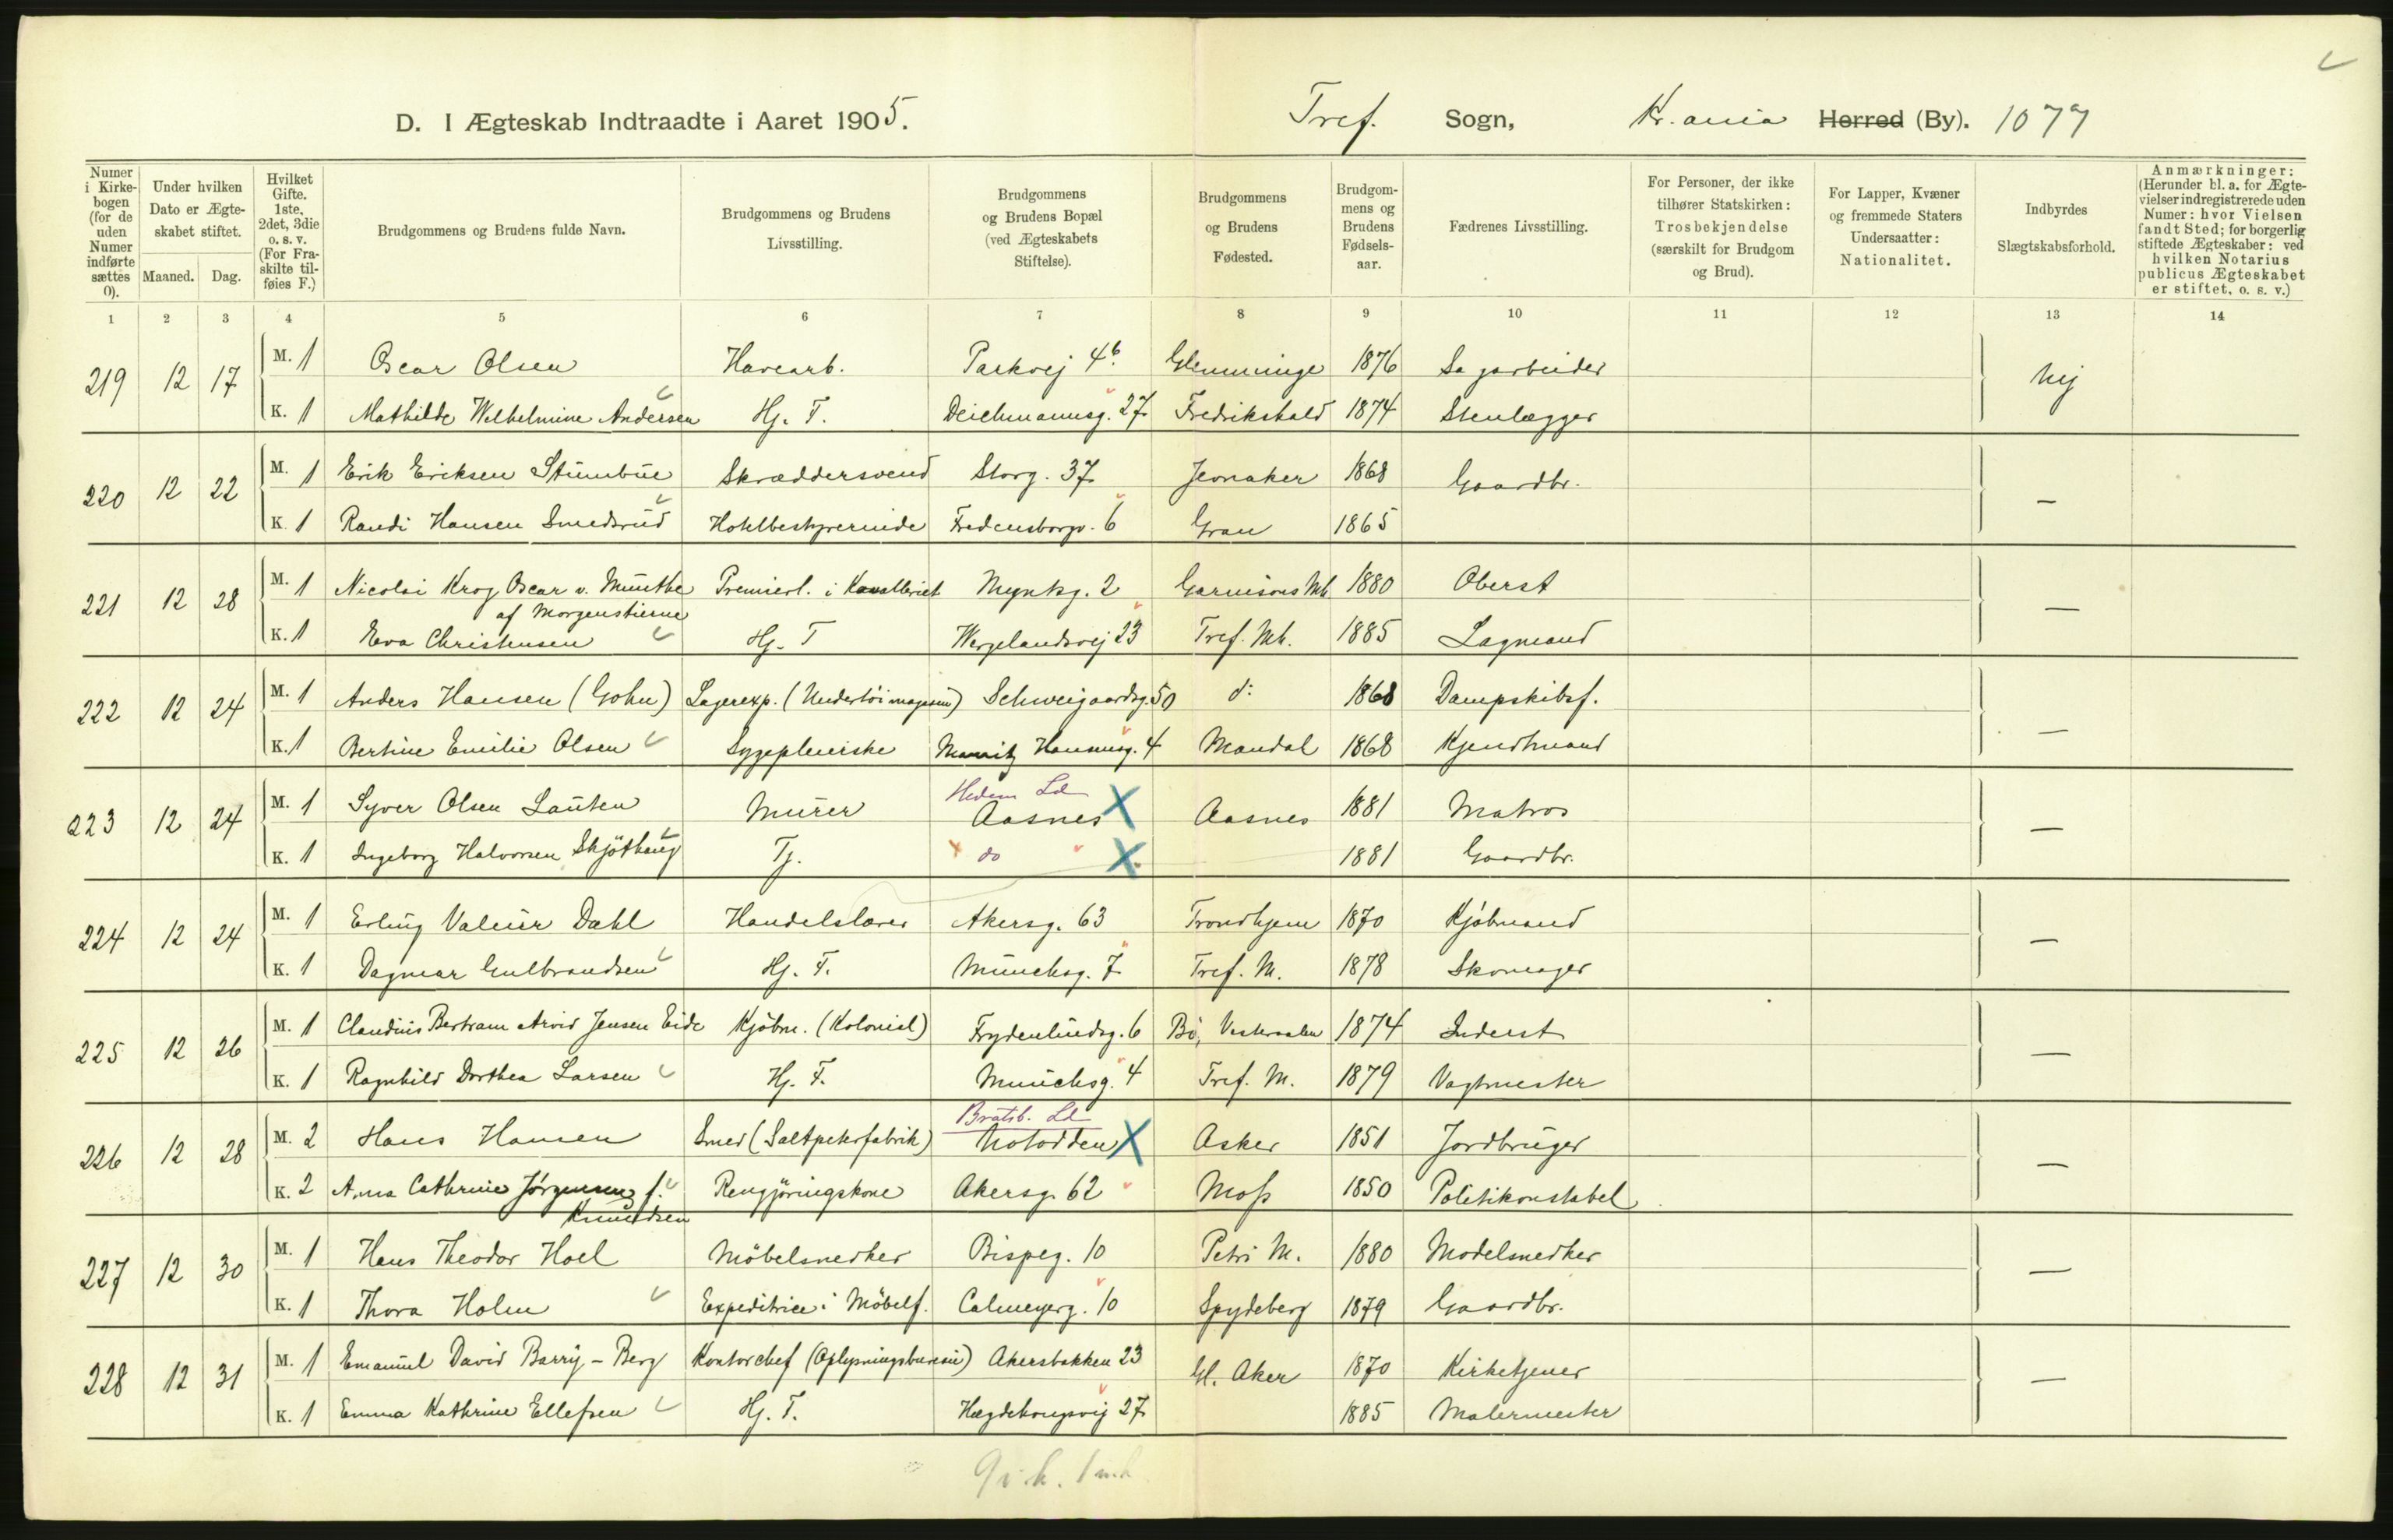 D. I Ægteskab Indtraadte i Aaret 1905. Tref. Sogn, Kr.ania Herred (By). 1077
Numer i Kirkebogen (for de uden Numer indførte sættes 0).
Under hvilken Dato er Ægteskabet stiftet. Maaned. Dag.
Hvilket Gifte. 1ste, 2det, 3die o. s. v. (For Fraskilte tilføies F.)
Brudgommens og Brudens fulde Navn.
Brudgommens og Brudens Livsstilling.
Brudgommens og Brudens Bopæl (ved Ægteskabets Stiftelse).
Brudgommens og Brudens Fødested.
Brudgommens og Brudens Fødselsaar.
Fædrenes Livsstilling.
For Personer, der ikke tilhører Statskirken: Trosbekjendelse (særskilt for Brudgom og Brud).
For Lapper, Kvæner og fremmede Staters Undersaatter: Nationalitet.
Indbyrdes Slægtskabsforhold.
Anmærkninger: (Herunder bl. a. for Ægtevielser indregistrerede uden Numer: hvor Vielsen fandt Sted; for borgerlig stiftede Ægteskaber: ved hvilken Notarius publicus Ægteskabet er stiftet, o. s. v.)
1 2 3 4 5 6 7 8 9 10 11 12 13 14
219 12 17 M. 1 Oscar Olsen Havearb. Parkvej 4b. Glemminge 1876 Sagarbeider Nej
K. 1 Mathilde Wilhelmine Andersen Hj. T. Deichmannsg. 27 Fredrikshald 1874 Stenlægger
220 12 22 M. 1 Erik Eriksen Stumbue Skræddersvend Storg. 37 Jevnaker 1868 Gaardbr. —
K. 1 Randi Hansen Smedsrud Hotelbestyrerinde Fredensborgv. 6 Gran 1865
221 12 28 M. 1 Nicolai Krog Oscar v. Munthe af Morgenstierne Premierl. i Kavalleriet Myntg. 2 Garnisons Mh 1880 Oberst —
K. 1 Eva Christensen Hj. T Wergelandsvej 23 Tref. Mh. 1885 Lagmand
222 12 24 M. 1 Anders Hansen (Gohn) Lagerexp. (Undertöimagasin) Schweigaardsg. 50 d: 1868 Dampskibsf. —
K. 1 Bertine Emilie Olsen Sygepleierske Mauritz Hansensg. 4 Mandal 1868 Kjendtmand
223 12 24 M. 1 Syver Olsen Lauten Murer Hedem Ld Aasnes X Aasnes 1881 Matros —
K. 1 Ingeborg Halvorsen Skjöthaug Tj. do X 1881 Gaardbr.
224 12 24 M. 1 Erling Valeur Dahl Handelslærer Akersg. 63 Trondhjem 1870 Kjöbmand —
K. 1 Dagmar Gulbrandsen Hj. T. Munchsg. 7 Tref. M. 1878 Skomager
225 12 26 M. 1 Claudius Bertram Arvid Jensen Eide Kjöbm. (Kolonial) Frydenlundsg. 6 Bö, Vesteraalen 1874 Inderst —
K. 1 Ragnhild Dorthea Larsen Hj. T. Munchsg. 4 Tref. M. 1879 Vagtmester
226 12 28 M. 2 Hans Hansen Smed (Saltpeterfabrik) Bratsb. Ld Notodden X Asker 1851 Jordbruger —
K. 2 Anna Cathrine Jörgensen f. Knudsen Rengjöringskone Akersg. 62 Moss 1850 Politikonstabel
227 12 30 M. 1 Hans Theodor Hoel Möbelsnedker Bispeg. 10 Petri M. 1880 Modelsnedker —
K. 1 Thora Holm Expeditrice i Möbelf. Calmeyerg. 10 Spydeberg 1879 Gaardbr.
228 12 31 M. 1 Emanuel David Barriy-Berg Kontorchef (Oplysningsbureau) Akersbakken 23 Gl. Aker 1870 Kirketjener —
K. 1 Emma Kathrine Ellefsen Hj. T. Hægdehougsvej 27 1885 Malermester
9 i. h. 1 u. h.